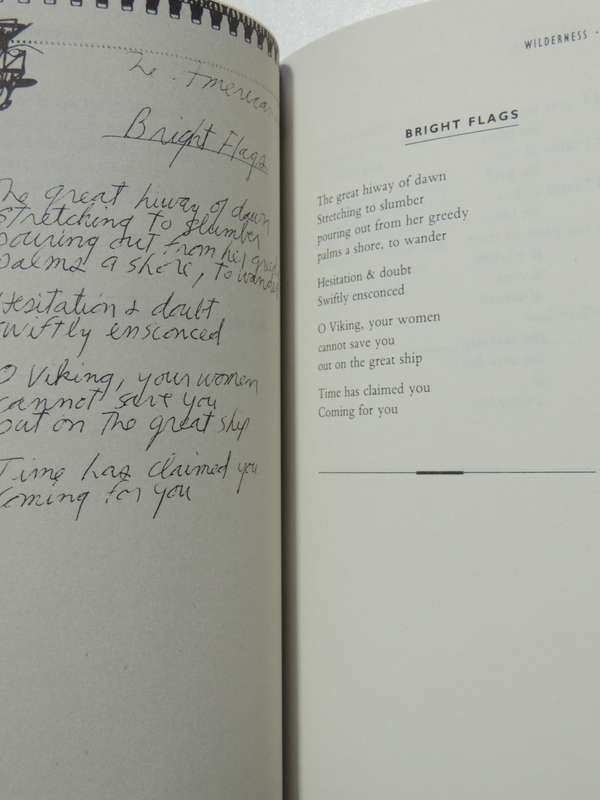 The American
Bright Flags
The great hiway of dawn
Stretching to slumber
pouring out from her greedy
palms a shore, to wander
Hesitation & doubt
swiftly ensconced
O Viking, your women
cannot save you
out on the great ship
Time has claimed you
Coming for you
WILDERNESS
BRIGHT FLAGS
The great hiway of dawn
Stretching to slumber
pouring out from her greedy
palms a shore, to wander
Hesitation & doubt
Swiftly ensconced
O Viking, your women
cannot save you
out on the great ship
Time has claimed you
Coming for you